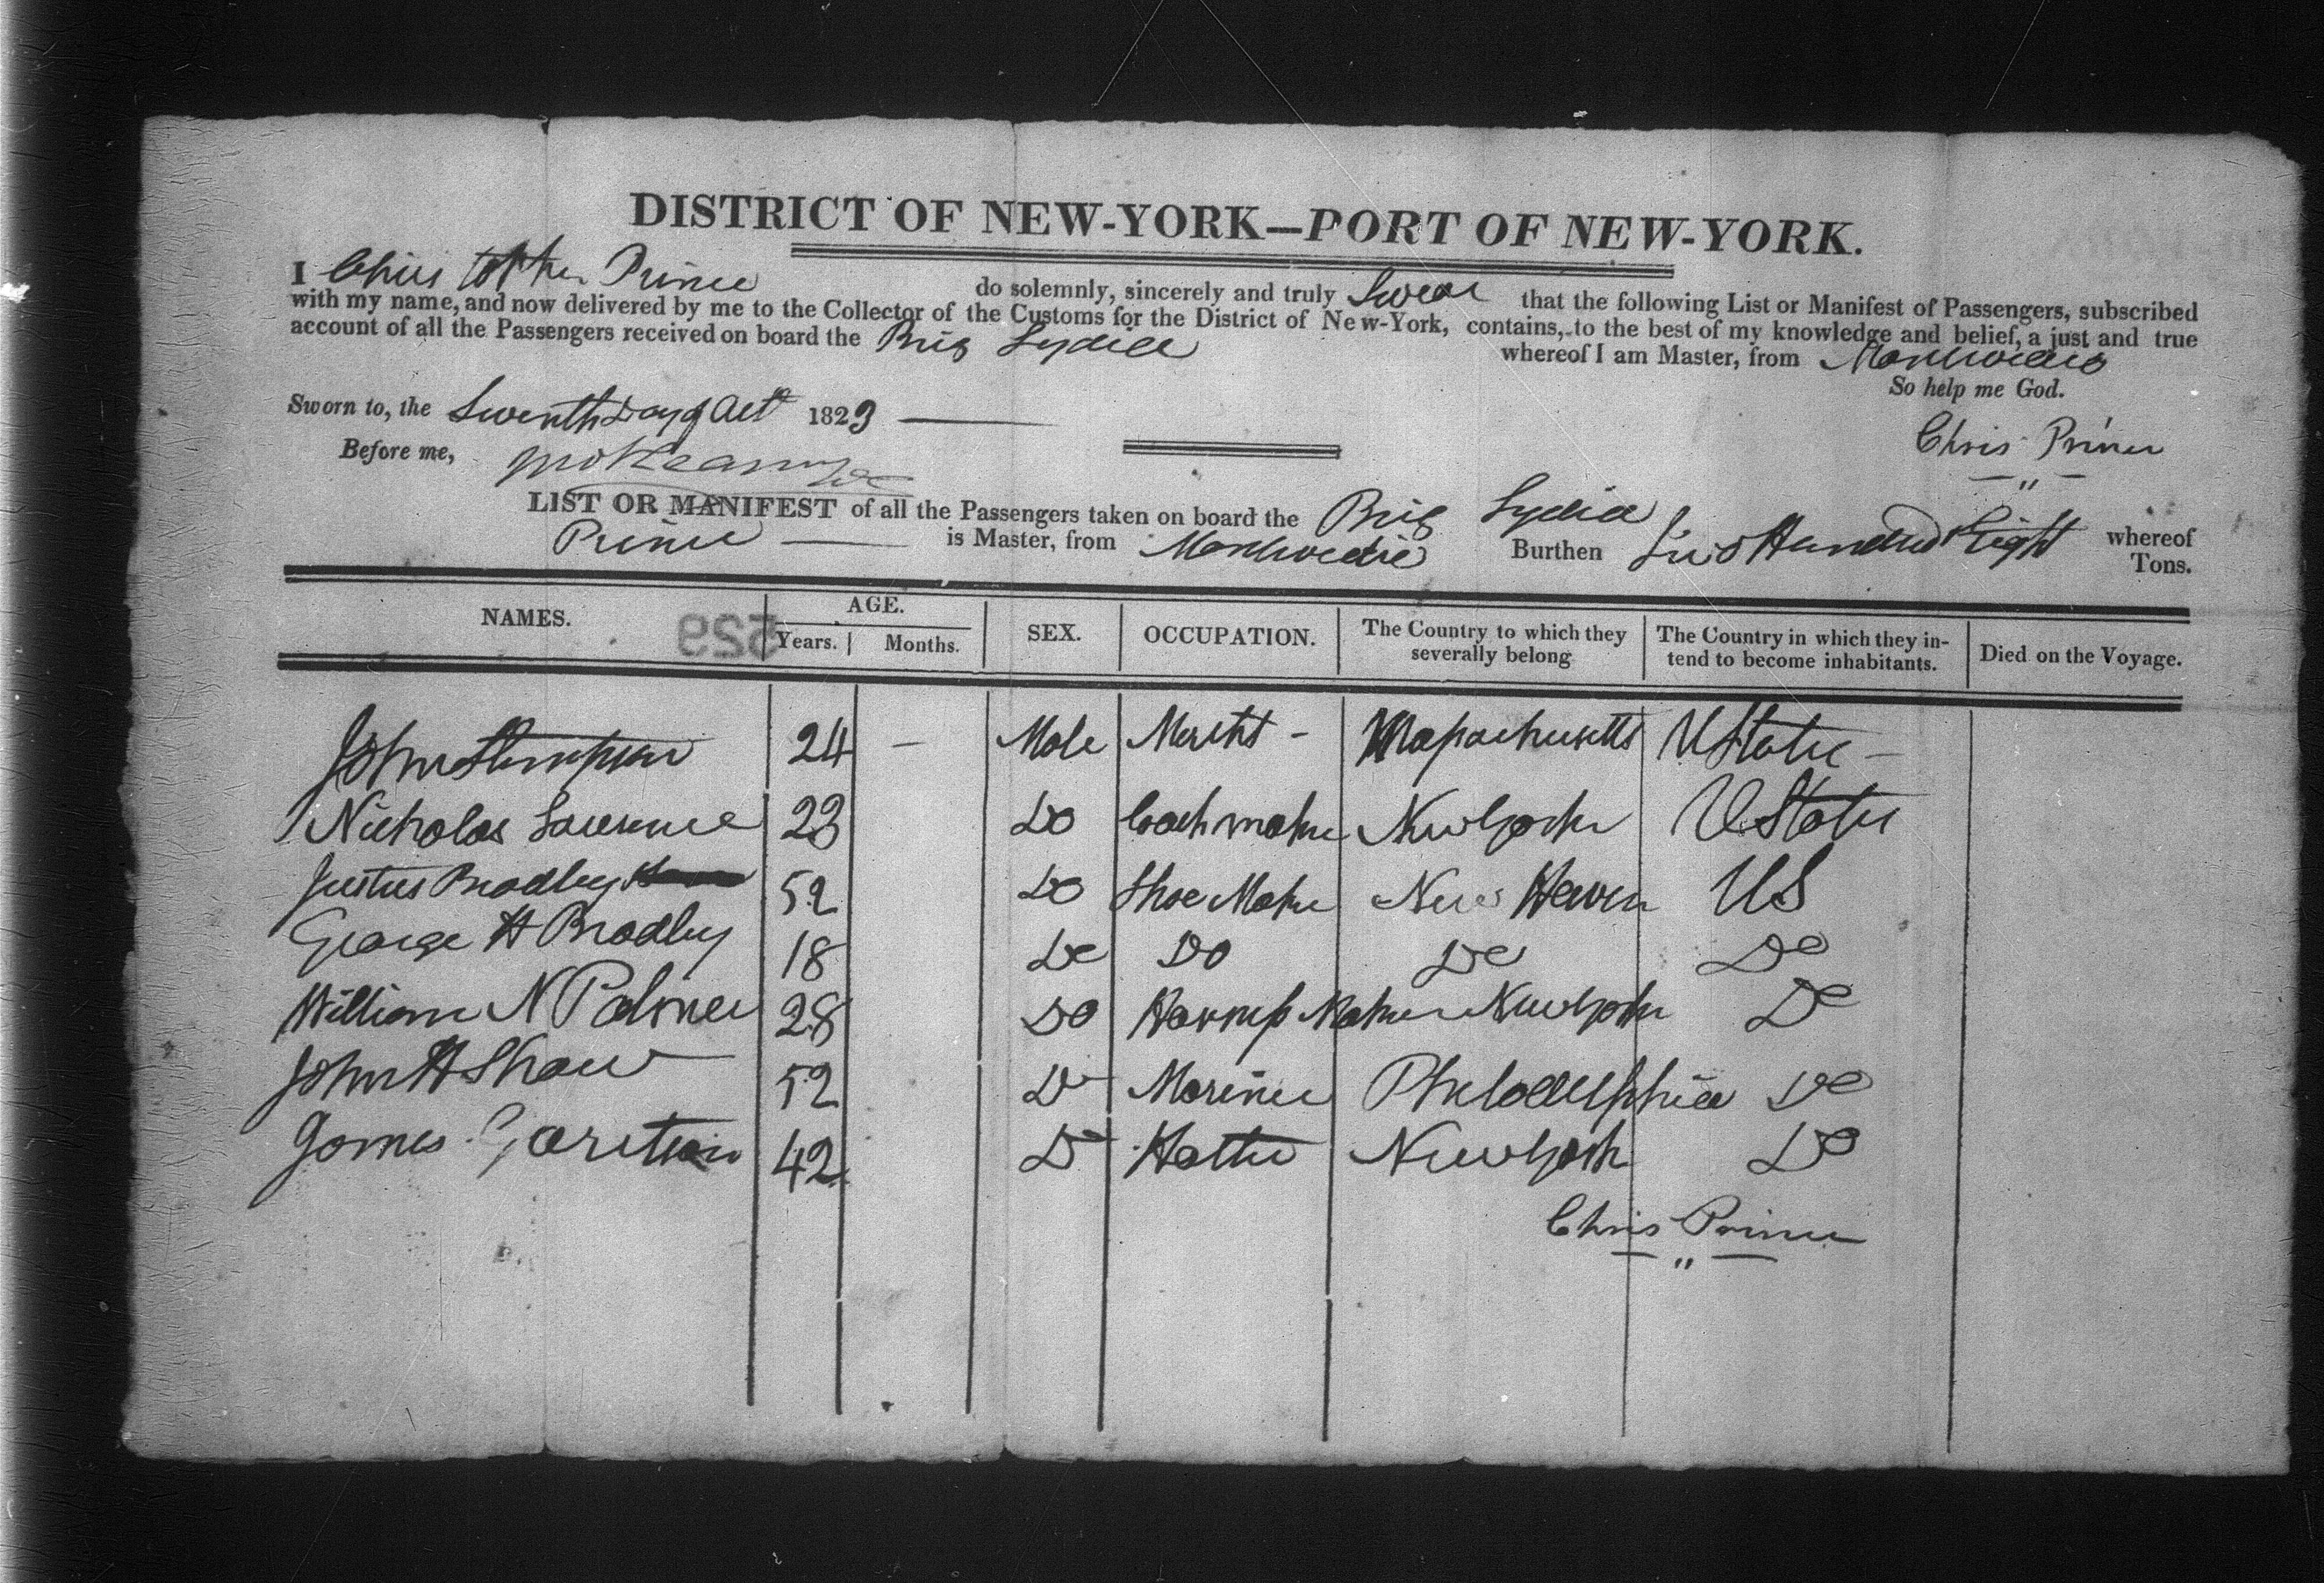 DISTRICT OF NEW-YORK—PORT OF NEW-YORK.
I Christopher Prince do solemnly, sincerely and truly Swear that the following List or Manifest of Passengers, subscribed
with my name, and now delivered by me to the Collector of the Customs for the District of New-York, contains, to the best of my knowledge and belief, a just and true
account of all the Passengers received on board the Brig Lydia whereof I am Master, from
So help me God.
Sworn to, the Seventh Day of Oct 1823
Chris Prince
Before me,
LIST OR MANIFEST of all the Passengers taken on board the Brig Lydia whereof
Prince is Master, from Burthen Two Hundred Eight Tons.
NAMES. AGE. SEX. OCCUPATION. The Country to which they severally belong The Country in which they intend to become inhabitants. Died on the Voyage.
Years. Months.
529
John Stimpson 24 – Male Mercht – Massachusetts U States –
Nicholas Lawrence 23 Do Coach maker New York U States
Justus Bradley 52 Do Shoe Maker New Haven US
George H Bradley 18 Do Do Do Do
William N Palmer 28 Do Harness Maker New York Do
John H Shaw 52 Do Mariner Philadelphia Do
James 42 Do Hatter New York Do
Chris Prince